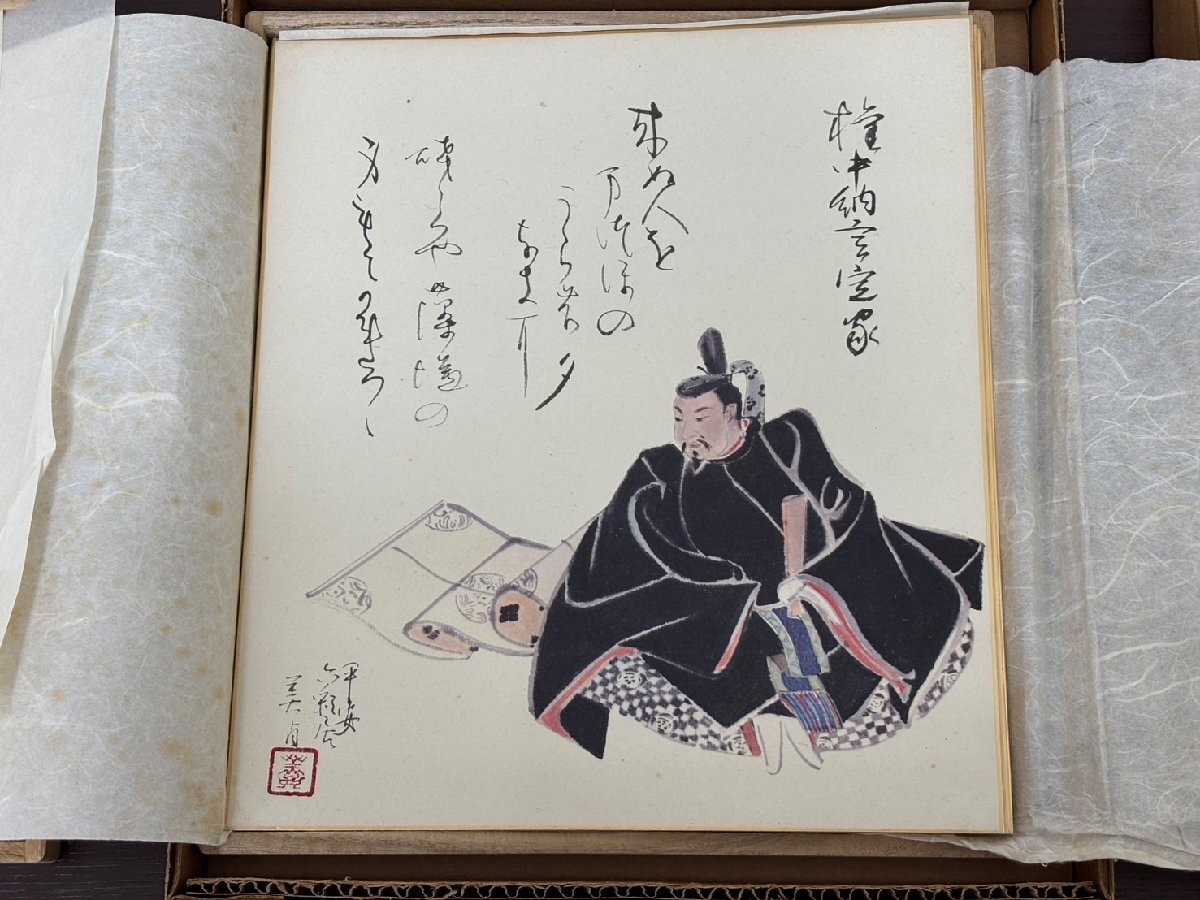 権中納言定家
来ぬ人を
まつほの
うらの夕
なぎに
焼くや藻塩の
身もこかれつゝ